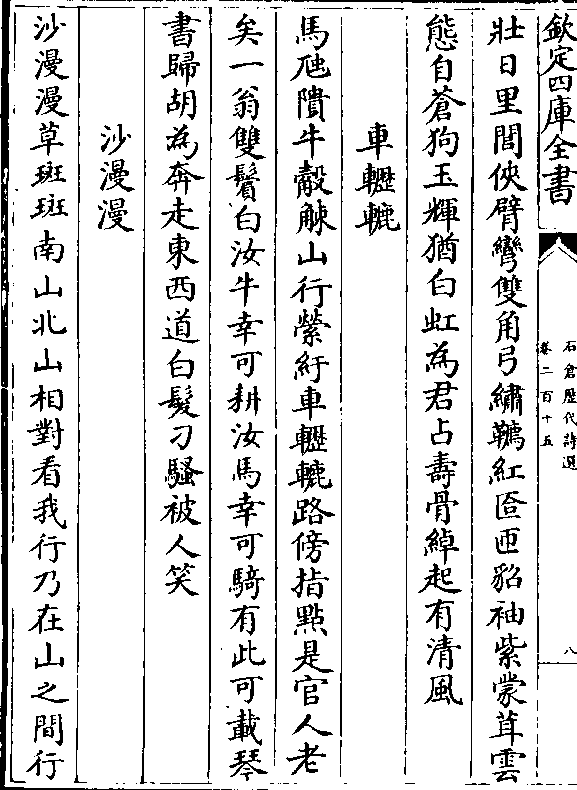 欽定四庫全書
石倉歷代詩選
卷二百十五
八
壯日里閭俠臂彎雙角弓繡韉紅匼匝貂袖紫蒙茸雲
態自蒼狗玉輝猶白虹為君占壽骨綽起有清風
車轣轆
馬虺隤牛觳觫山行縈紆車轣轆路傍指點是官人老
矣一翁雙鬢白汝牛幸可耕汝馬幸可騎有此可載琴
書歸胡為奔走東西道白髮刁騷被人笑
沙漫漫
沙漫漫草斑斑南山北山相對看我行乃在山之間行